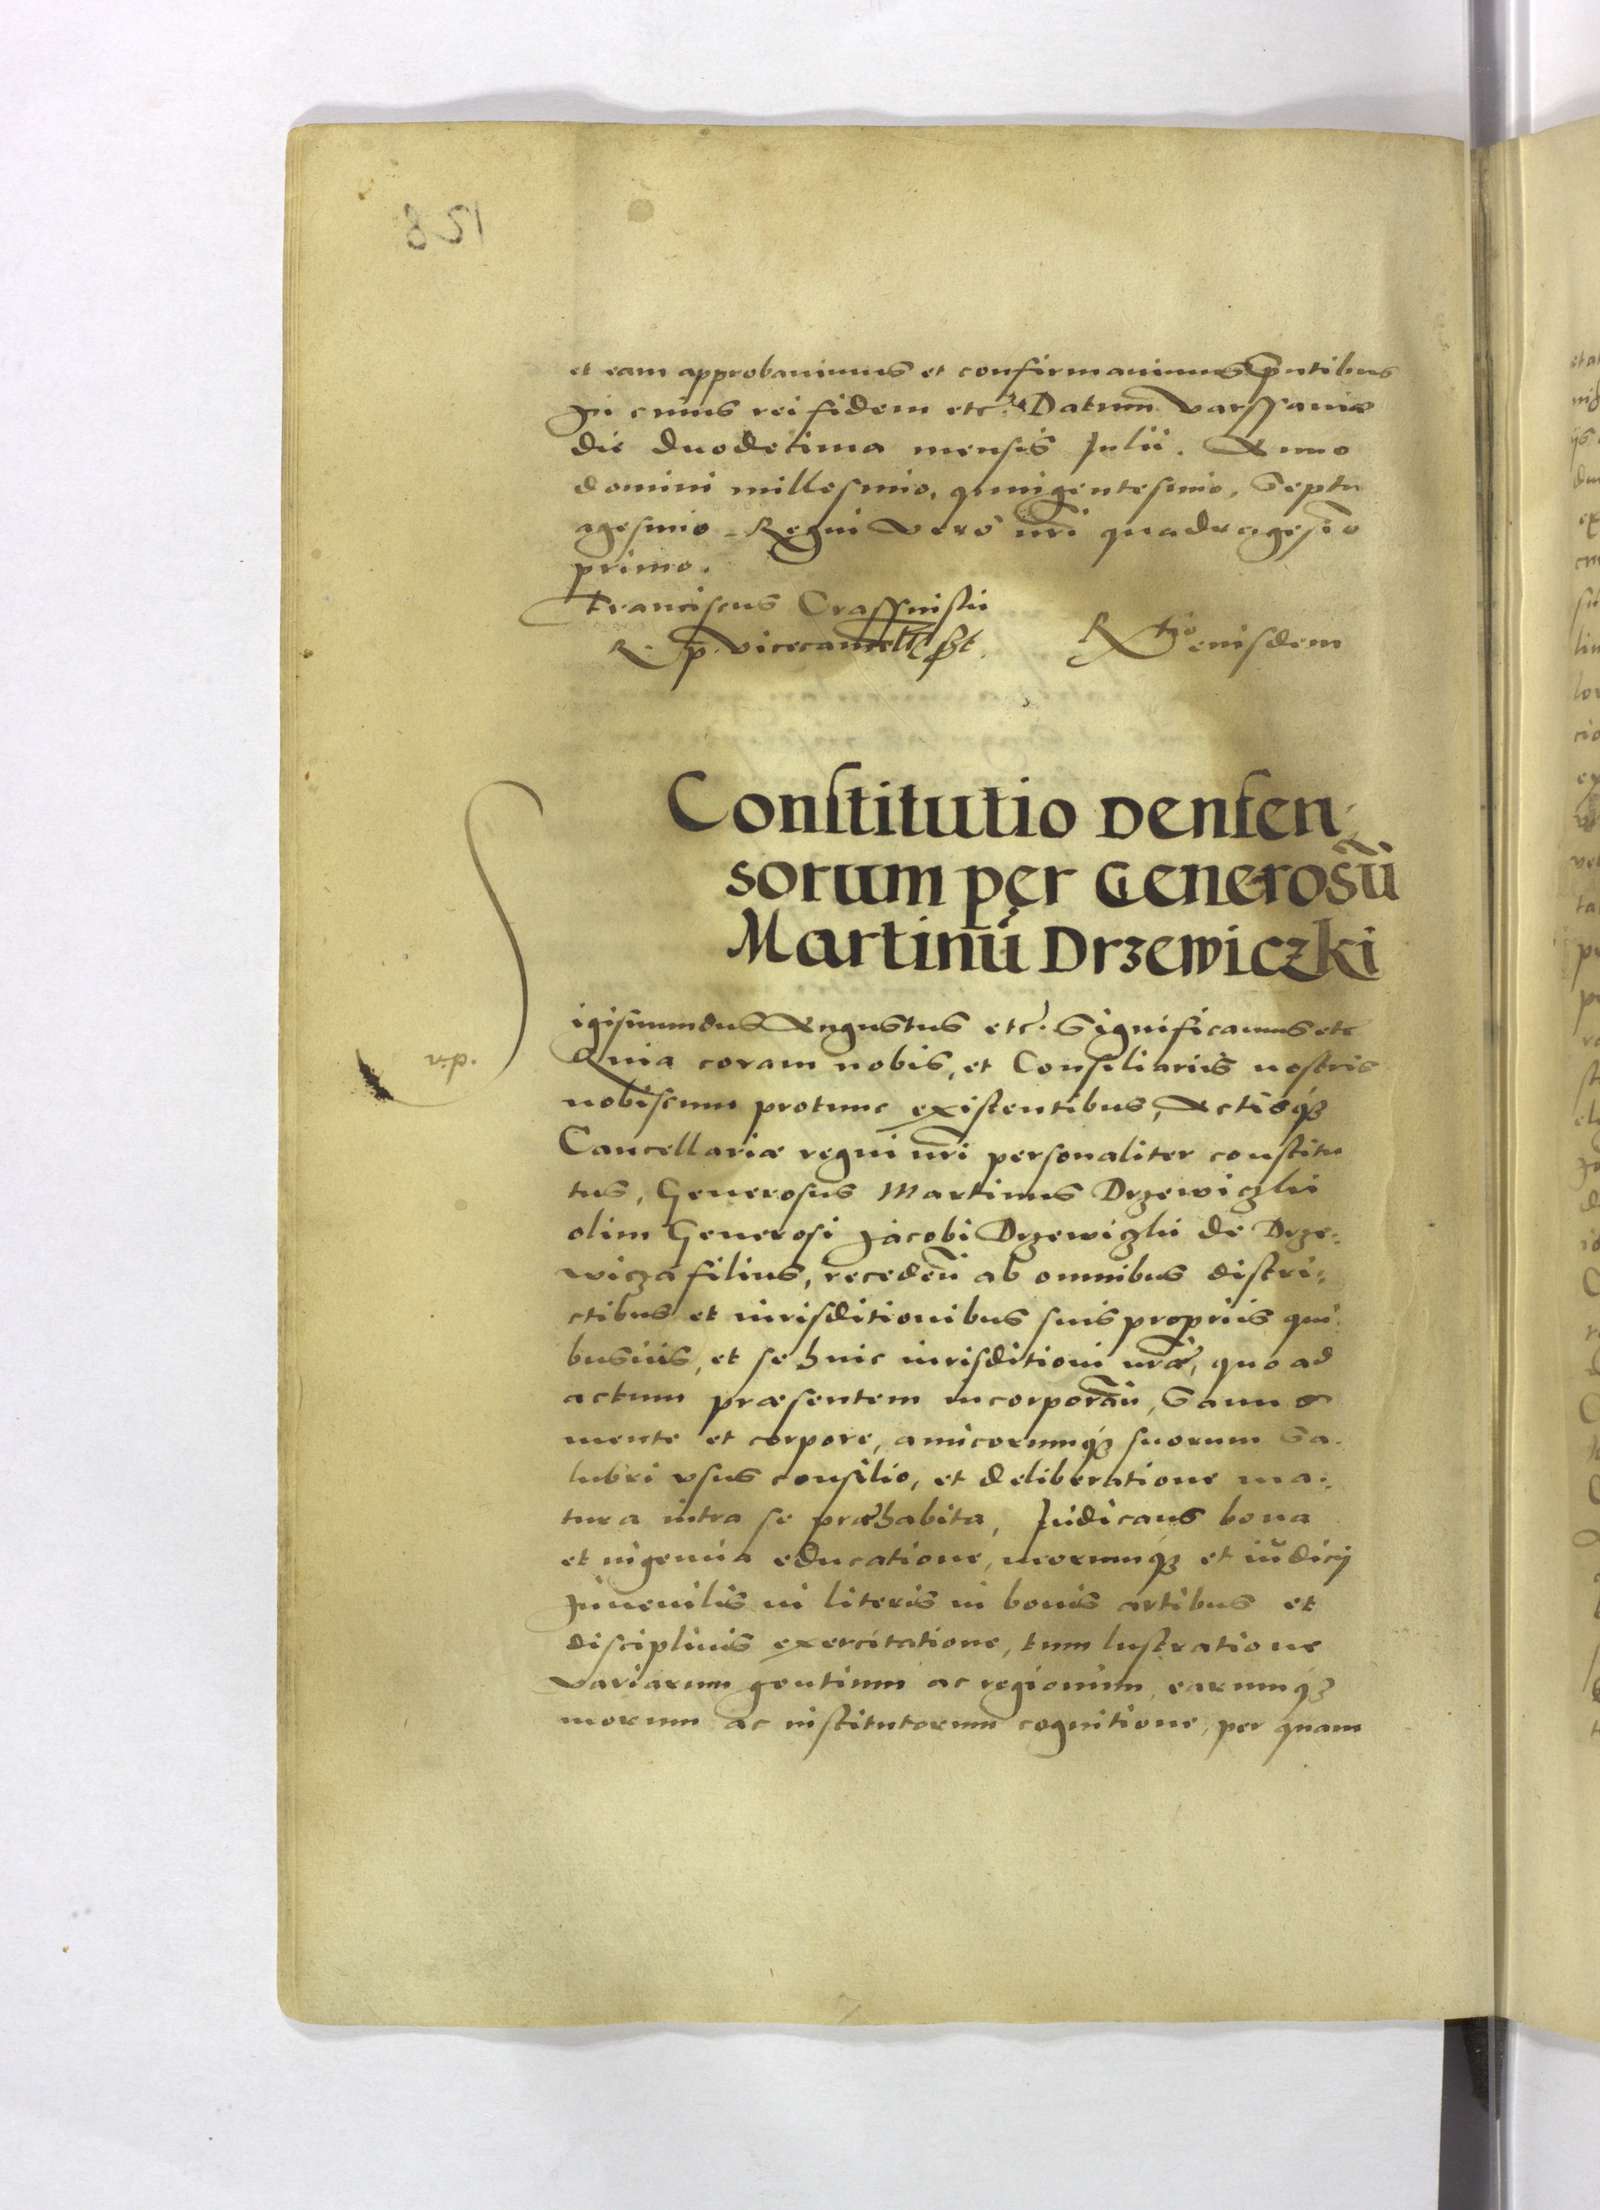 et eam approbavimus et confirmavimus p̃ntibus
In cuius rei fidem etc. Datum Varssaviæ
die duodecima mensis Julii. Anno
domini millesimo, quingentesimo, Septu
agesimo. Regni vero nr̃i quadragesĩo
primo.
Franciscus Crassinskii
R. p. vicecancell sßt. Rtio eiusdem
Constitutio Denfen
sorum per Generosũ
Martinũ Drzewiczki
Sigismundus Augustus etc. Significamus etc
Quia coram nobis, et Consiliariis nostris
nobiscum protunc existentibus, Actisqȝ
Cancellariæ regni nr̃i personaliter constitu
tus, Generosus Martinus Drzewiczkii
olim Generosi Jacobi Drzewiczkii de Drze-
wicza filius, recedeñ ab omnibus distri-
ctibus et iurisditionibus suis propriis qui
busvis, et se huic iurisditioni nr̃æ, quo ad
actum præsentem incorporañ, Sanus
mente et corpore, amicorumqȝ suorum sa-
lubri usus consilio, et deliberatione ma-
tura intra se præhabita, Iudicans bona
et ingenua educatione, morumqȝ et iudicij
Juvenilis in literis in bonis artibus et
disciplinis exercitatione, tum lustratione
variarum gentium ac regionum, earumqȝ
morum ac institutorum cognitione, per quam